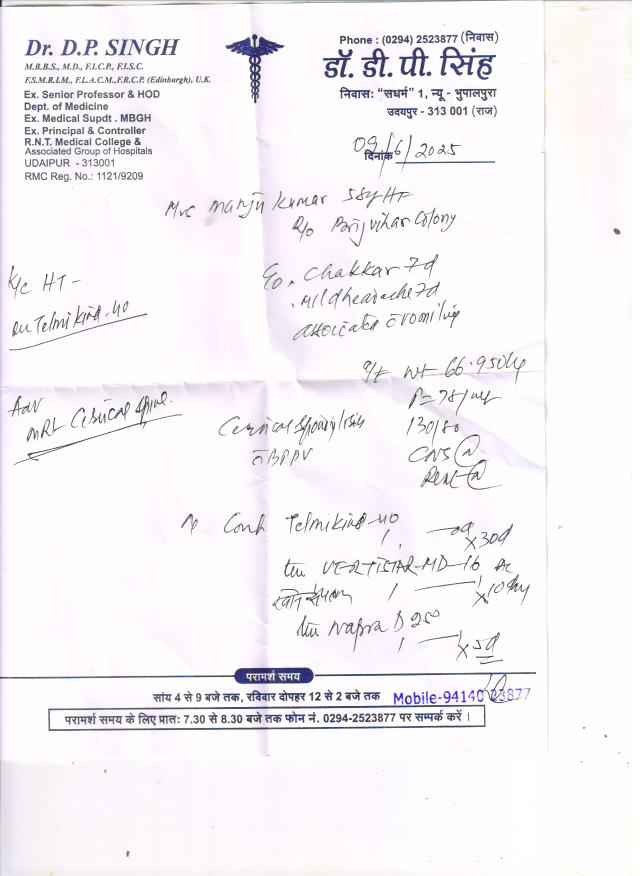 Dr. D.P. SINGH
M.B.B.S., M.D., F.I.C.P., F.I.S.C.
F.S.M.R.I.M., F.L.A.C.M.,F.R.C.P. (Edinburgh), U.K.
Ex. Senior Professor & HOD
Dept. of Medicine
Ex. Medical Supdt . MBGH
Ex. Principal & Controller
R.N.T. Medical College &
Associated Group of Hospitals
UDAIPUR - 313001
RMC Reg. No.: 1121/9209
Phone : (0294) 2523877 (निवास)
डॉ. डी. पी. सिंह
निवासः "सधर्म" 1, न्यू - भुपालपुरा
उदयपुर - 313 001 (राज)
दिनांक 09/6/2025
Mrs Manju Kumar 58y
R/o Brijvihar Colony
K/c HT -
on Telmikind-40
C/o. Chakkar 7d
. Mild headache 7d
associated c vomiting
O/E Wt 66.950kg
P = 78/
130/80
CNS
Adv
MRI Cervical Spine.
Cervical Spondylosis
c BPPV
Telmikind-40
1 x 30d
VERTISTAR-MD-16
1 1 x 10 day
Napra D 250
1 1 x 5d
परामर्श समय
सांय 4 से 9 बजे तक, रविवार दोपहर 12 से 2 बजे तक
Mobile-94140 23877
परामर्श समय के लिए प्रातः 7.30 से 8.30 बजे तक फोन नं. 0294-2523877 पर सम्पर्क करें ।